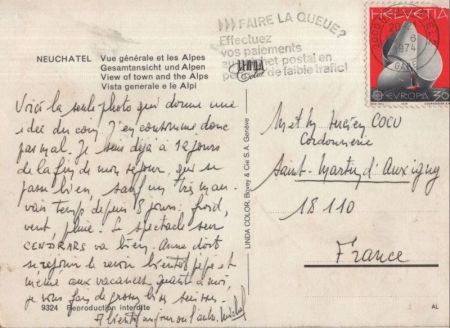 NEUCHATEL Vue générale et les Alpes
Gesamtansicht und Alpen
View of town and the Alps
Vista generale e le Alpi
Voici la seule photo qui donne une
idée du coin. J'en consomme donc
pas mal. Je suis déjà à 12 jours
de la fin de mon séjour, qui se
passe bien sauf un très mau-
vais temps depuis 8 jours : froid,
vent, pluie. Le spectacle sur
CENDRARS va bien. Anne doit
se réjouir de revoir bientôt pépé et
mémé aux vacances. Quant à moi,
je vous fais de grosses bises suisses.
A bientôt Michel
9324 Reproduction interdite
LINDA COLOR, Bovey & Cie S.A. Genève
LINDA
Color
FAIRE LA QUEUE?
Effectuez
vos paiements
postal en
de faible trafic!
HELVETIA
1974
EUROPA 30
M et Mme Lucien COCU
Cordonnerie
Saint-Martin d'Auxigny
18110
France
AL